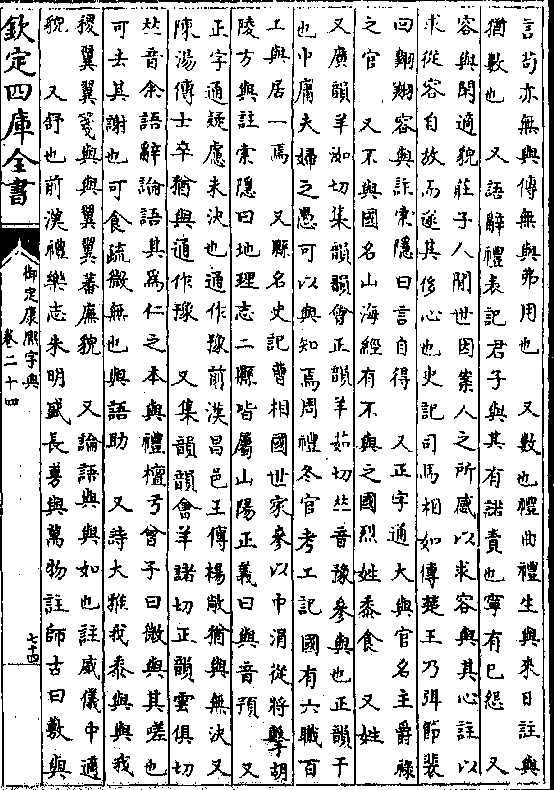 言苟亦無與傳無與弗用也　又數也禮曲禮生與來日註與
猶數也　又語辭禮表記君子與其有諾責也寧有已怨　又
容與閑適貌莊子人閒世因案人之所感以求容與其心註以
求從容自放而遂其侈心也史記司馬相如傳楚王乃弭節裴
回翺翔容與註索隱曰言自得　又正字通大與官名主爵祿
之官　又不與國名山海經有不與之國烈姓黍食　又姓
又廣韻羊洳切集韻韻會正韻羊茹切𠀤音豫參與也正韻干
也中庸夫婦之愚可以與知焉周禮冬官考工記國有六職百
工與居一焉　又縣名史記曹相國世家參以中涓從將擊胡
陵方與註索隱曰地理志二縣皆屬山陽正義曰與音預　又
正字通疑慮未決也通作豫前漢昌邑王傳楊敞猶與無決又
陳湯傳士卒猶與通作豫　又集韻韻會羊諸切正韻雲俱切
𠀤音余語辭論語其爲仁之本與禮檀弓曾子曰微與其嗟也
可去其謝也可食疏微無也與語助　又詩大雅我黍與與我
稷翼翼箋與與翼翼蕃廡貌　又論語與與如也註威儀中適
貌　又舒也前漢禮樂志朱明盛長旉與萬物註師古曰敷與
欽定四庫全書
御定康熙字典
卷二十四
七十四